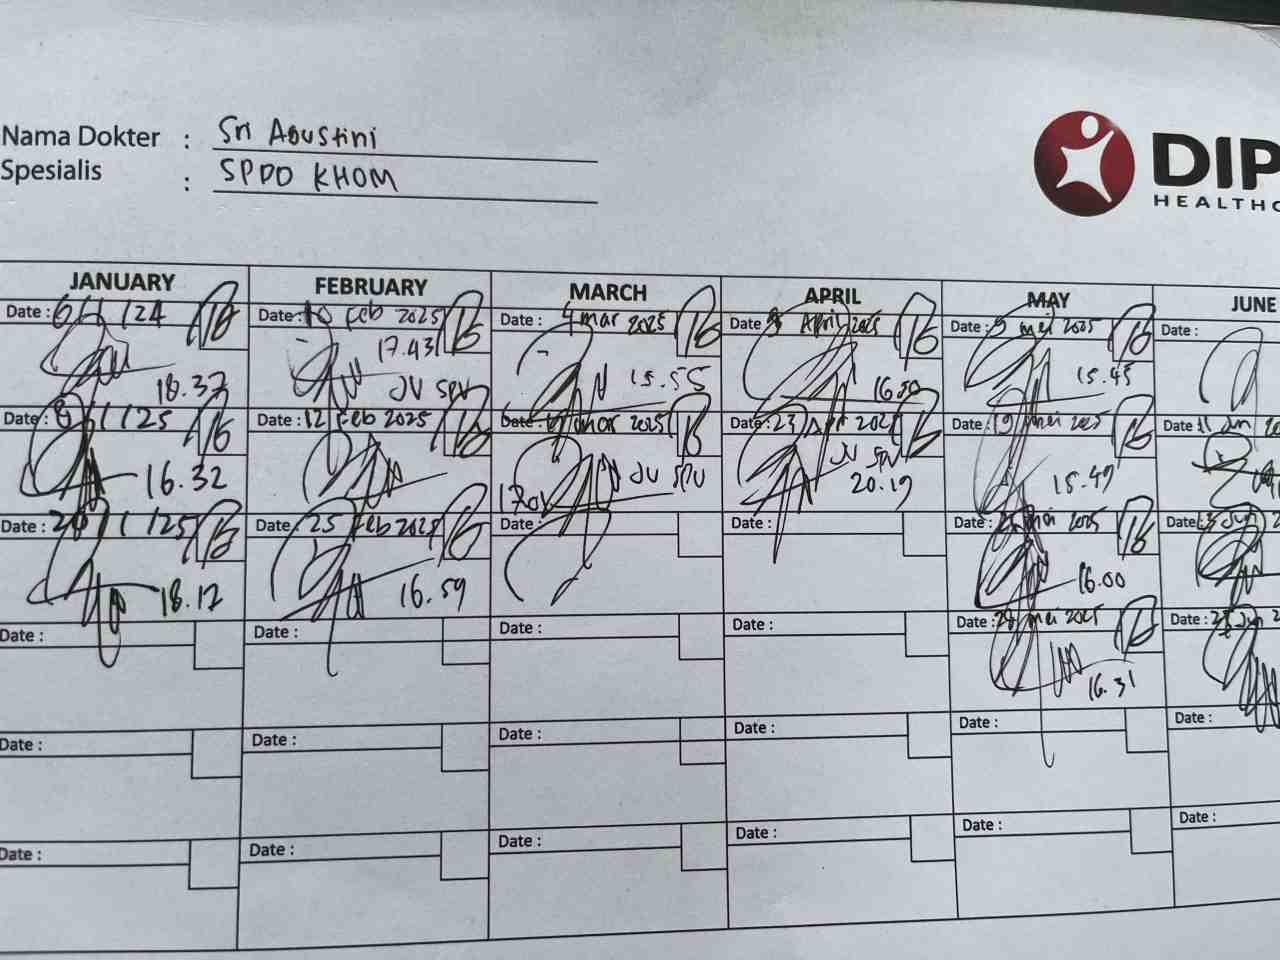 Nama Dokter : Sri Agustini
Spesialis : SPDD KHOM
DIP
HEALTHC
JANUARY FEBRUARY MARCH APRIL MAY JUNE
Date : 6/1/24 Date : 10 Feb 2025 Date : 4 mar 2025 Date 8 April 2025 Date : 9 mei 2025 Date :
18.37 17.43 JV SPV 15.55 16.50 15.45
Date : 8/1/25 Date : 12 Feb 2025 Date : mar 2025 Date : 23 Apr 2025 Date : 19 mei 2025 Date : 11 Jun
16.32 JV SPV JV SPV 20.19 15.49
Date : 20/1/25 Date : 25 Feb 2025 Date : Date : Date : mei 2025 Date : Jun
18.12 16.59 16.00
Date : Date : Date : Date : Date : 28 mei 2025 Date : Jun
16.31
Date : Date : Date : Date : Date : Date :
Date : Date : Date : Date : Date : Date :